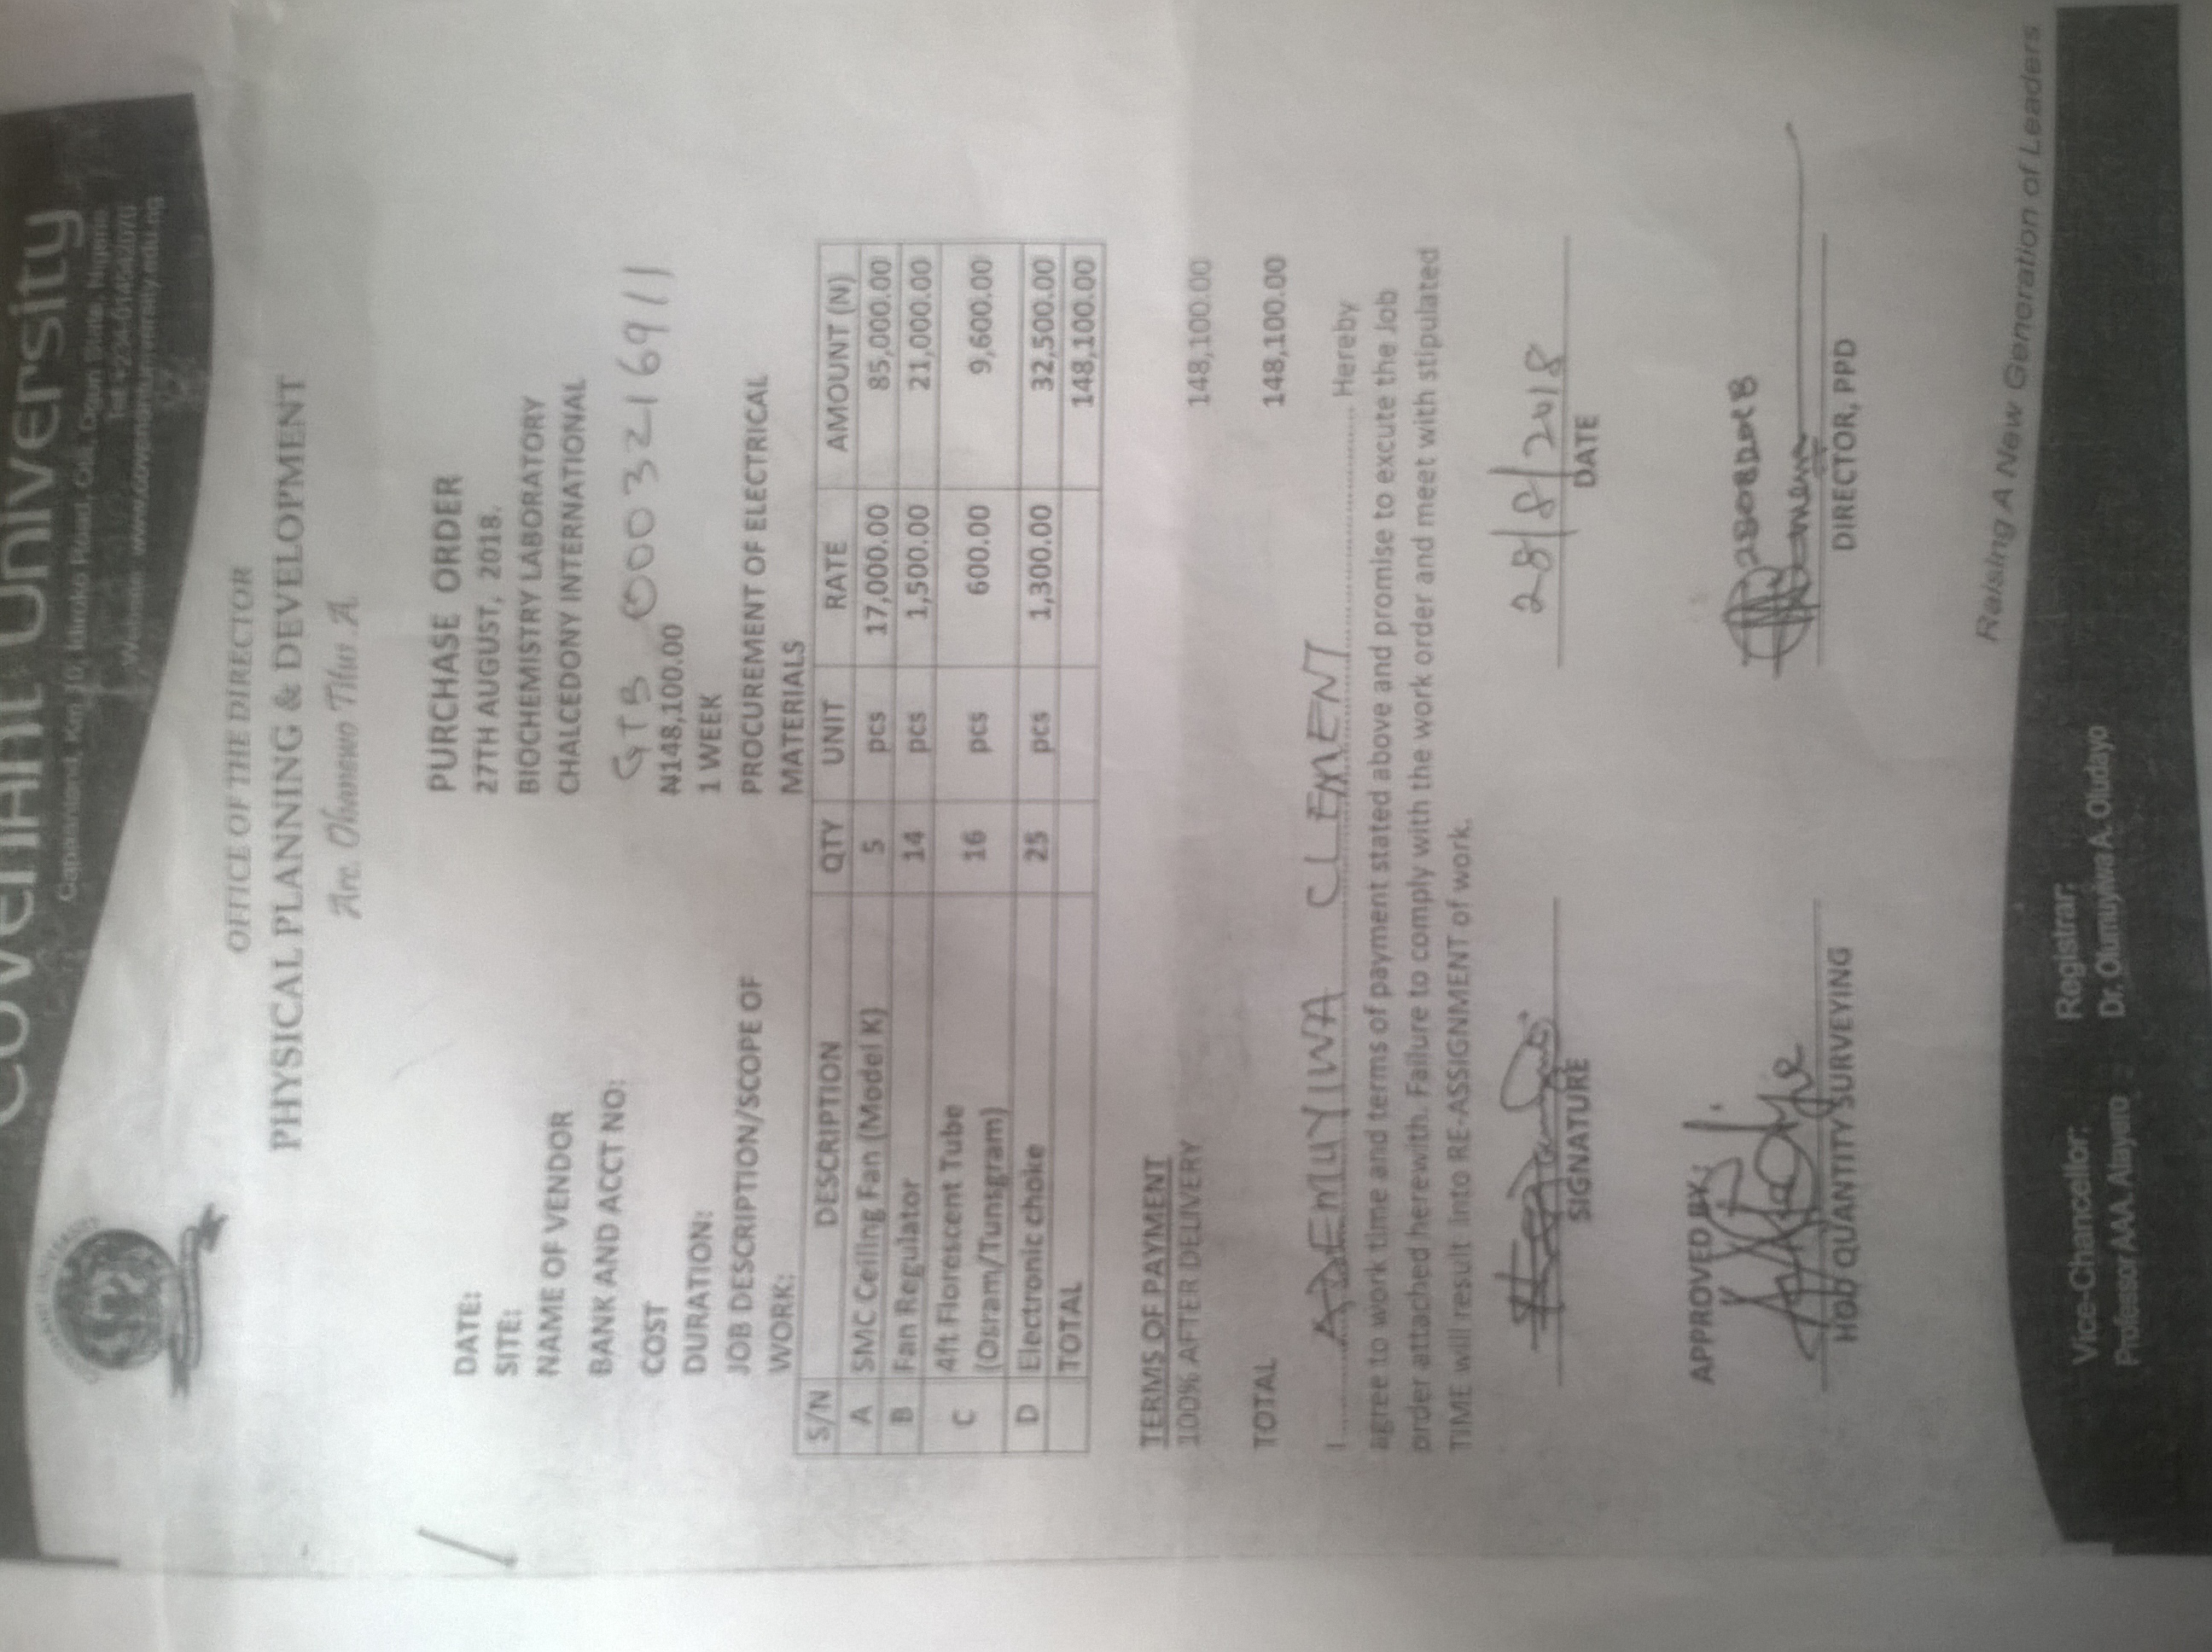 Covenant University
Canaanland, Km 10, Idiroko Road, Ota, Ogun State, Nigeria
Website: www.covenantuniversity.edu.ng
OFFICE OF THE DIRECTOR
PHYSICAL PLANNING & DEVELOPMENT
Arc. Obamewo Titus A.
PURCHASE ORDER
DATE: 27TH AUGUST, 2018.
SITE: BIOCHEMISTRY LABORATORY
NAME OF VENDOR CHALCEDONY INTERNATIONAL
BANK AND ACCT NO: GTB 0003216911
COST ₦148,100.00
DURATION: 1 WEEK
JOB DESCRIPTION/SCOPE OF PROCUREMENT OF ELECTRICAL
WORK: MATERIALS
S/N DESCRIPTION QTY UNIT RATE AMOUNT (N)
A SMC Ceiling Fan (Model K) 5 pcs 17,000.00 85,000.00
B Fan Regulator 14 pcs 1,500.00 21,000.00
C 4ft Florescent Tube 16 pcs 600.00 9,600.00
(Osram/Tunsgram)
D Electronic choke 25 pcs 1,300.00 32,500.00
TOTAL 148,100.00
TERMS OF PAYMENT
100% AFTER DELIVERY 148,100.00
TOTAL 148,100.00
I ADEMUYIWA CLEMENT Hereby
agree to work time and terms of payment stated above and promise to excute the Job
order attached herewith. Failure to comply with the work order and meet with stipulated
TIME will result into RE-ASSIGNMENT of work.
28/8/2018
SIGNATURE DATE
APPROVED BY:
HOD QUANTITY SURVEYING DIRECTOR, PPD
Raising A New Generation of Leaders
Vice-Chancellor: Registrar:
Professor AAA. Atayero Dr. Olumuyiwa A. Oludayo